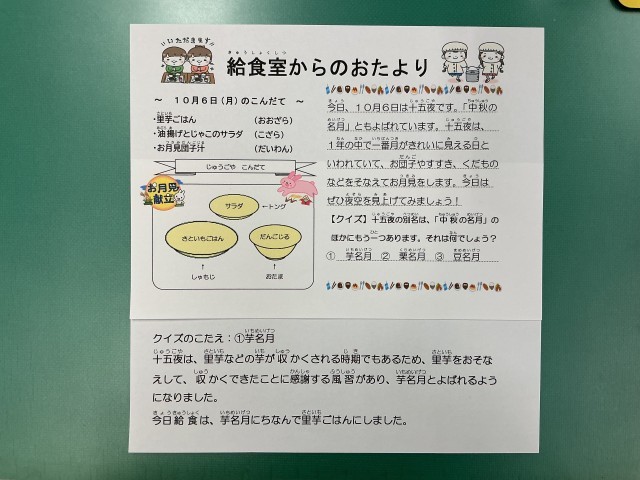 いただきます!!
給食室からのおたより
～ 10月6日(月)のこんだて ～
・里芋ごはん (おおざら)
・油揚げとじゃこのサラダ (こざら)
・お月見団子汁 (だいわん)
じゅうごや こんだて
お月見
献立
サラダ
←トング
さといもごはん
だんごじる
↑
しゃもじ
↑
おたま
今日、10月6日は十五夜です。「中秋の
名月」ともよばれています。十五夜は、
1年の中で一番月がきれいに見える日と
いわれていて、お団子やすすき、くだもの
などをそなえてお月見をします。今日は
ぜひ夜空を見上げてみましょう！
【クイズ】十五夜の別名は、「中秋の名月」の
ほかにもう一つあります。それは何でしょう？
① 芋名月 ② 栗名月 ③ 豆名月
クイズのこたえ：①芋名月
十五夜は、里芋などの芋が収かくされる時期でもあるため、里芋をおそな
えして、収かくできたことに感謝する風習があり、芋名月とよばれるよう
になりました。
今日給食は、芋名月にちなんで里芋ごはんにしました。